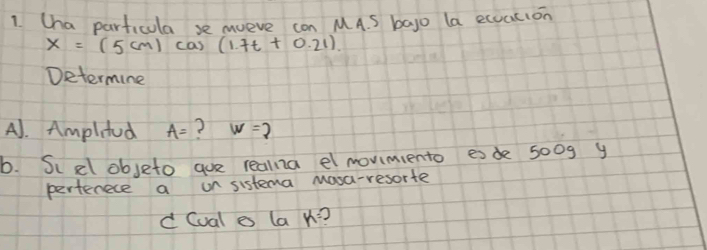 1. Una particula se mueve con M.A.S bajo la ecuación
x = (5 cm) cas (1.7t + 0.21).
Determine
A). Amplitud A=? W=?
b. Si el objeto que realiza el movimiento es de 500g y
pertenece a un sistema masa-resorte
¿Cual es la K=?